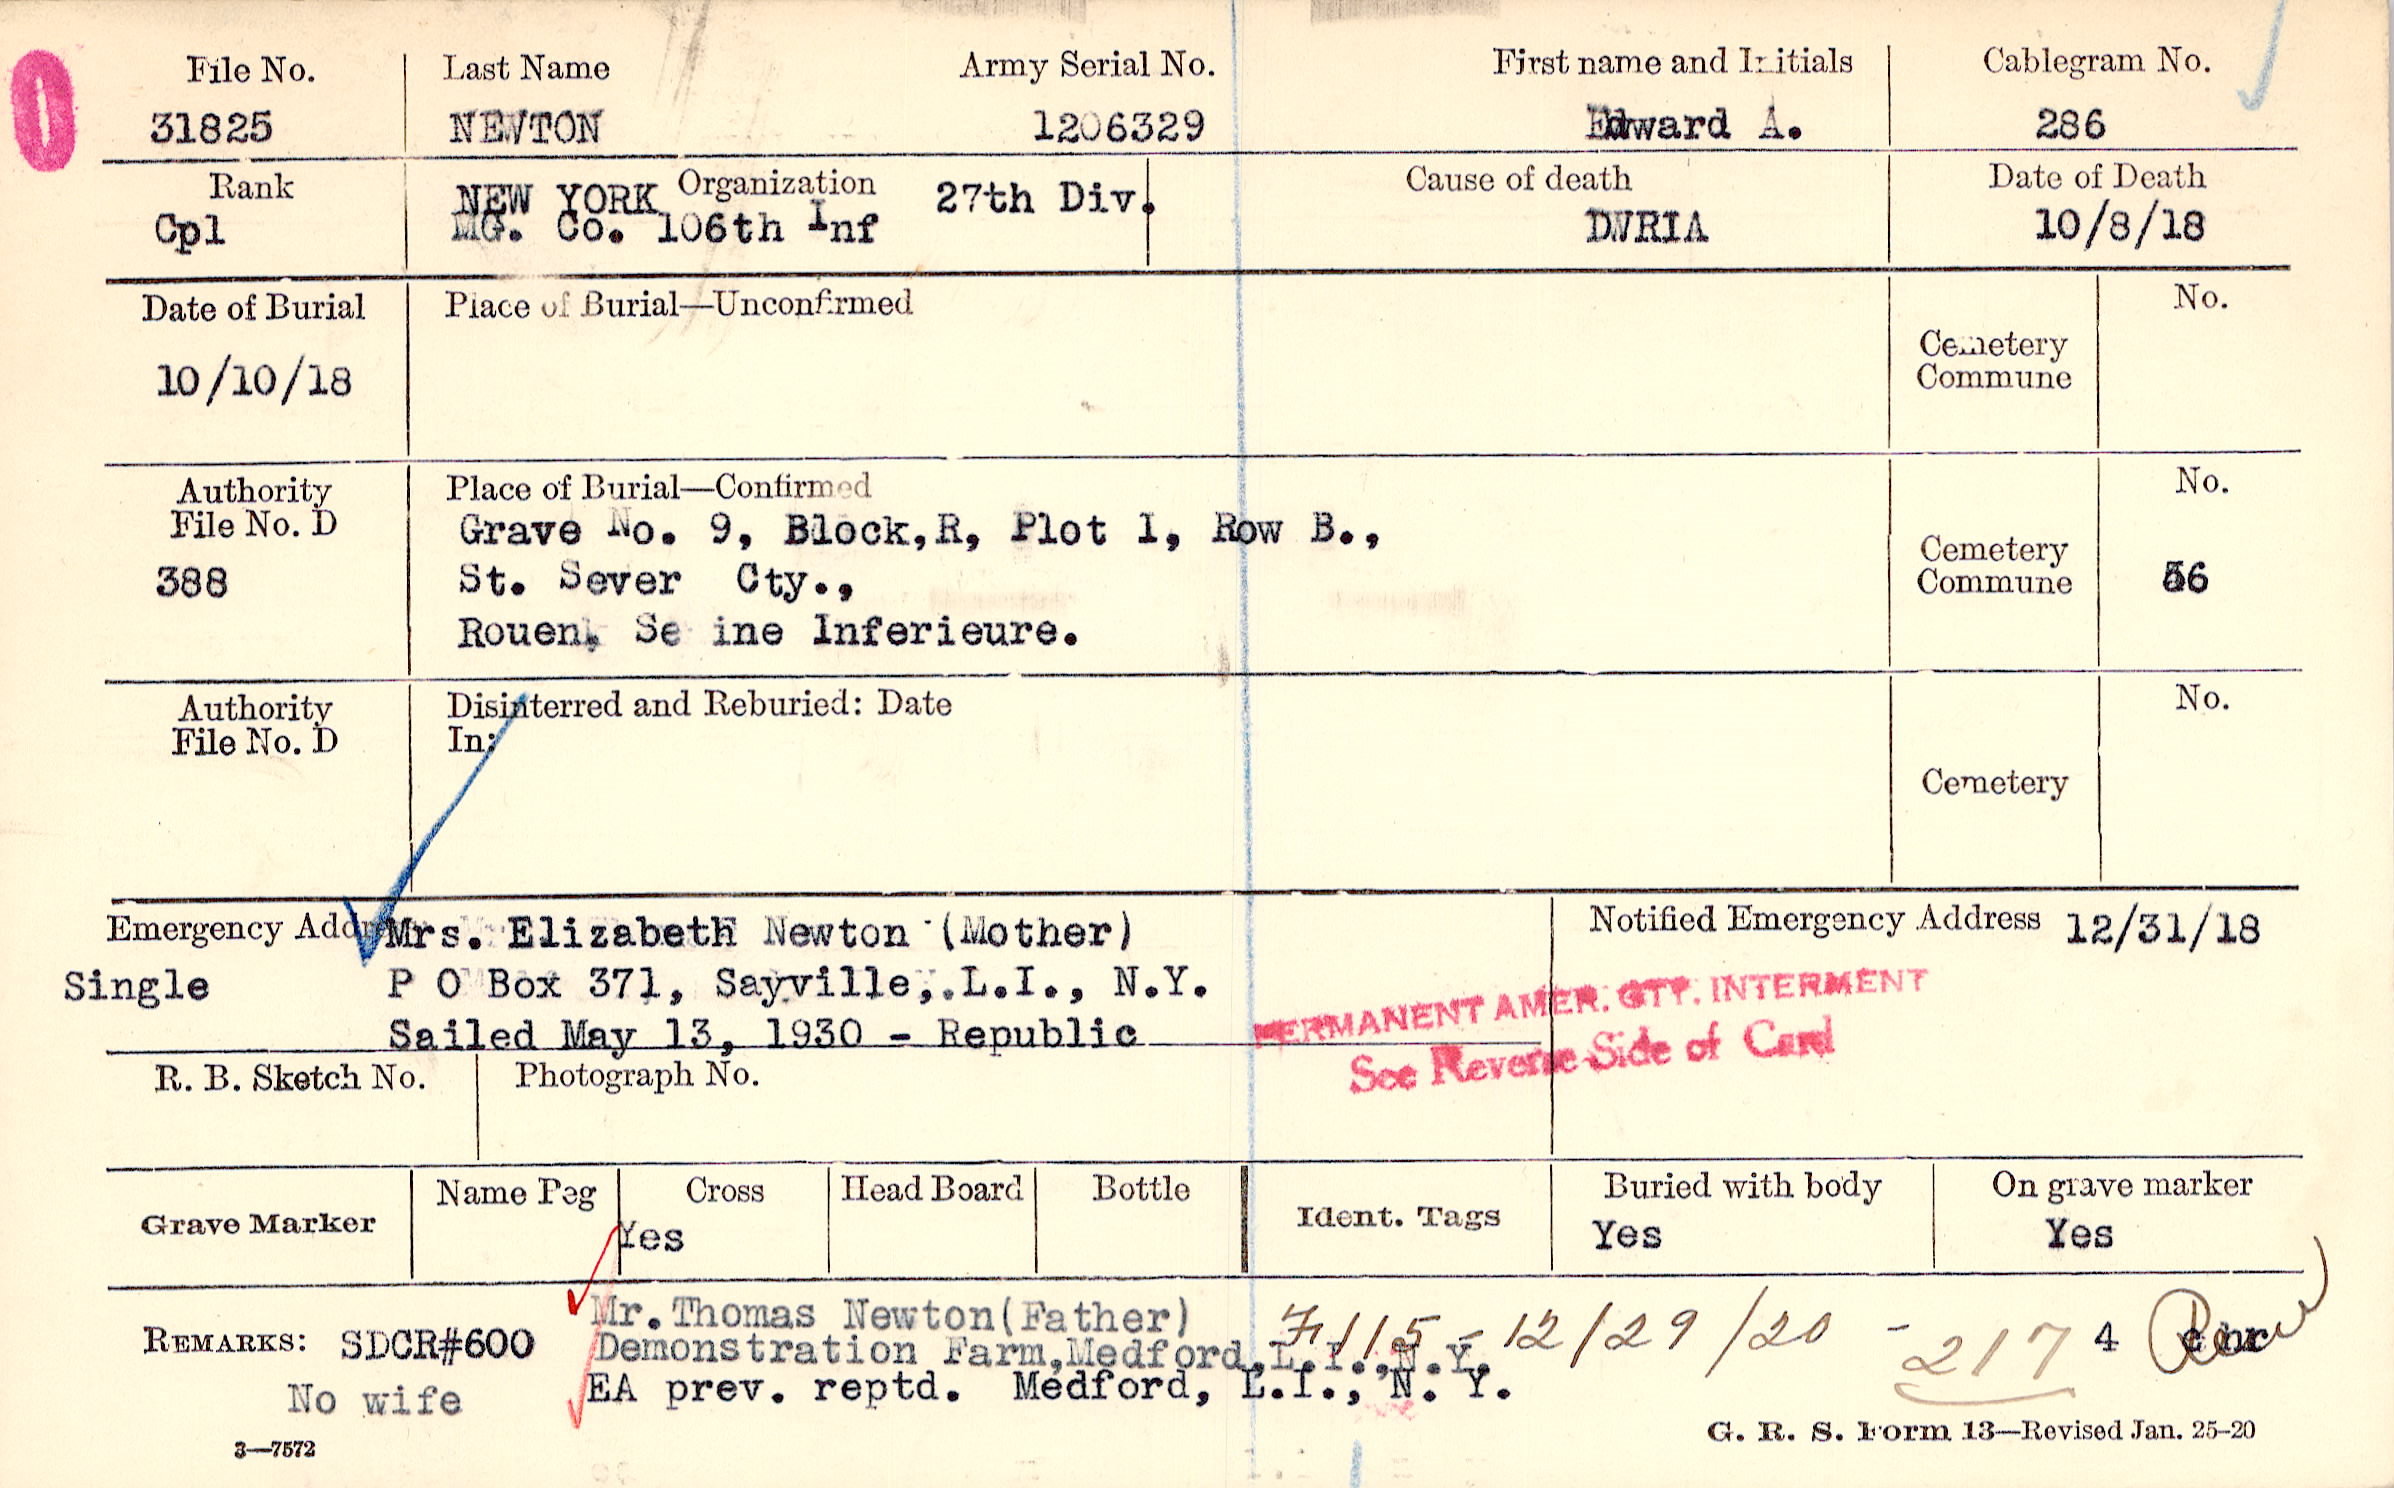 File No. Last Name Army Serial No. First name and Initials Cablegram No.
31825 NEWTON 1206329 Edward A. 286
Rank Organization Cause of death Date of Death
NEW YORK 27th Div.
Cpl MG. Co. 106th Inf DWRIA 10/8/18
Date of Burial Place of Burial—Unconfirmed No.
Cemetery
Commune
10/10/18
Authority Place of Burial—Confirmed No.
File No. D Grave No. 9, Block,R, Plot 1, Row B.,
Cemetery
388 St. Sever Cty., Commune 56
Rouen, Se ine Inferieure.
Authority Disinterred and Reburied: Date No.
File No. D In:
Cemetery
Emergency Addre Mrs. Elizabeth Newton (Mother) Notified Emergency Address 12/31/18
Single P O Box 371, Sayville, L.I., N.Y.
PERMANENT AMER. CTY. INTERMENT
Sailed May 13, 1930 - Republic
See Reverse Side of Card
R. B. Sketch No. Photograph No.
Grave Marker Name Peg Cross Head Board Bottle Ident. Tags Buried with body On grave marker
Yes Yes Yes
Mr.Thomas Newton(Father) - 12/29/20 - 217 4
REMARKS: SDCR#600 Demonstration Farm,Medford,L.I.,N.Y.
No wife EA prev. reptd. Medford, L.I., N. Y.
3—7572 G. R. S. Form 13—Revised Jan. 25-20